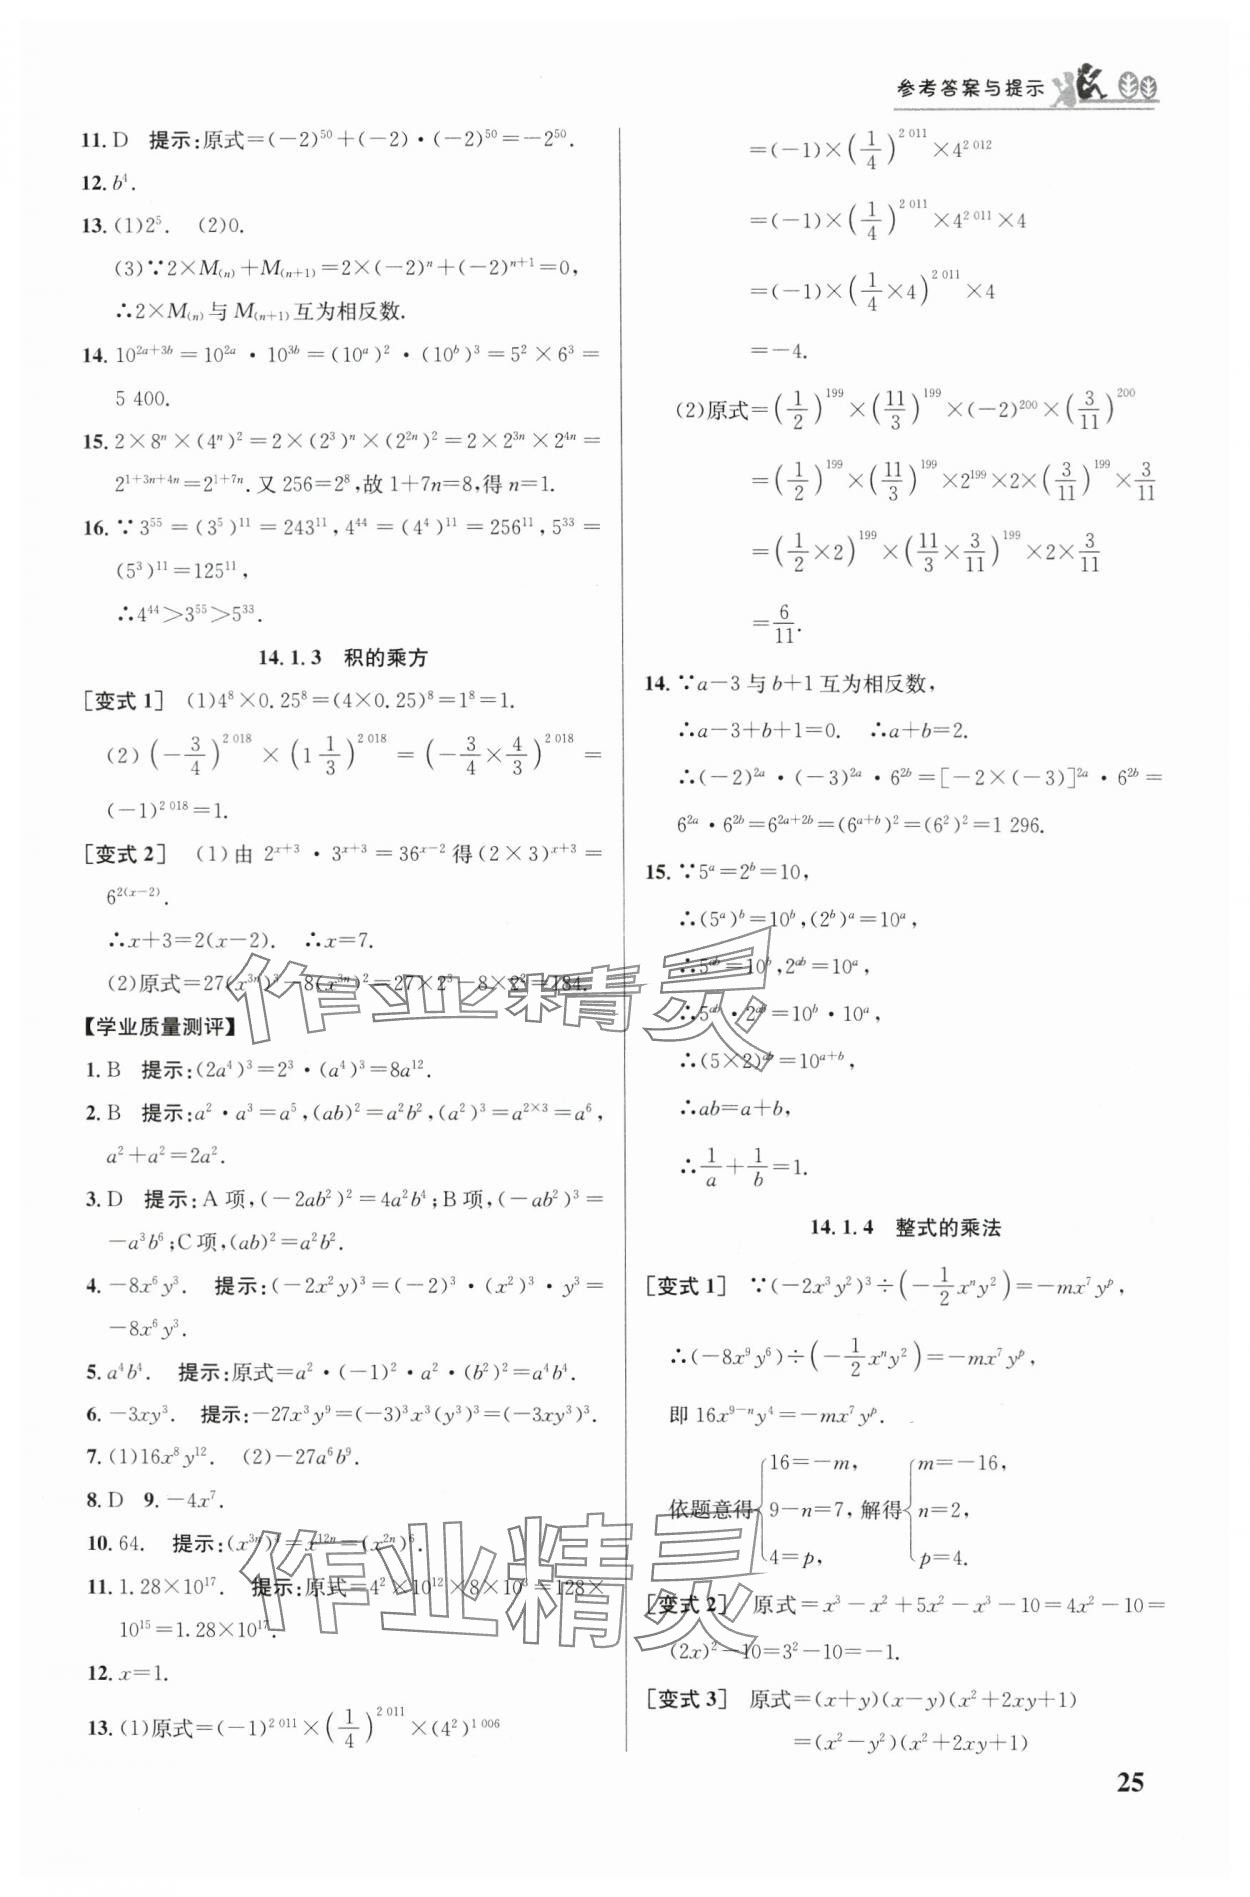 参考答案与提示
11. D 提示:原式=(-2)^50+(-2)·(-2)^50=-2^50.
12. b^4.
13. (1)2^5. (2)0.
(3)∵2×M_(n)+M_(n+1)=2×(-2)^n+(-2)^{n+1}=0,
∴2×M_(n)与M_(n+1)互为相反数.
14. 10^{2a+3b}=10^{2a}·10^{3b}=(10^a)^2·(10^b)^3=5^2×6^3=
5 400.
15. 2×8^n×(4^n)^2=2×(2^3)^n×(2^{2n})^2=2×2^{3n}×2^{4n}=
2^{1+3n+4n}=2^{1+7n}.又256=2^8,故1+7n=8,得n=1.
16. ∵3^55=(3^5)^11=243^11,4^44=(4^4)^11=256^11,5^33=
(5^3)^11=125^11,
∴4^44>3^55>5^33.
14.1.3 积的乘方
[变式1] (1)4^8×0.25^8=(4×0.25)^8=1^8=1.
(2)(-3/4)^{2 018}×(1 1/3)^{2 018}=(-3/4×4/3)^{2 018}=
(-1)^{2 018}=1.
[变式2] (1)由2^{x+3}·3^{x+3}=36^{x-2}得(2×3)^{x+3}=
6^{2(x-2)}.
∴x+3=2(x-2). ∴x=7.
(2)原式=27(x^{3n})^3-8(x^{3n})^2=27×2^3-8×2^2=184.
【学业质量测评】
1. B 提示:(2a^4)^3=2^3·(a^4)^3=8a^12.
2. B 提示:a^2·a^3=a^5,(ab)^2=a^2b^2,(a^2)^3=a^{2×3}=a^6,
a^2+a^2=2a^2.
3. D 提示:A项,(-2ab^2)^2=4a^2b^4;B项,(-ab^2)^3=
-a^3b^6;C项,(ab)^2=a^2b^2.
4. -8x^6y^3. 提示:(-2x^2y)^3=(-2)^3·(x^2)^3·y^3=
-8x^6y^3.
5. a^4b^4. 提示:原式=a^2·(-1)^2·a^2·(b^2)^2=a^4b^4.
6. -3xy^3. 提示:-27x^3y^9=(-3)^3x^3(y^3)^3=(-3xy^3)^3.
7. (1)16x^8y^12. (2)-27a^6b^9.
8. D 9. -4x^7.
10. 64. 提示:(x^{3n})^4=x^{12n}=(x^{2n})^6.
11. 1.28×10^17. 提示:原式=4^2×10^12×8×10^3=128×
10^15=1.28×10^17.
12. x=1.
13. (1)原式=(-1)^{2 011}×(1/4)^{2 011}×(4^2)^{1 006}
=(-1)×(1/4)^{2 011}×4^{2 012}
=(-1)×(1/4)^{2 011}×4^{2 011}×4
=(-1)×(1/4×4)^{2 011}×4
=-4.
(2)原式=(1/2)^199×(11/3)^199×(-2)^200×(3/11)^200
=(1/2)^199×(11/3)^199×2^199×2×(3/11)^199×3/11
=(1/2×2)^199×(11/3×3/11)^199×2×3/11
=6/11.
14. ∵a-3与b+1互为相反数,
∴a-3+b+1=0. ∴a+b=2.
∴(-2)^{2a}·(-3)^{2a}·6^{2b}=[-2×(-3)]^{2a}·6^{2b}=
6^{2a}·6^{2b}=6^{2a+2b}=(6^{a+b})^2=(6^2)^2=1 296.
15. ∵5^a=2^b=10,
∴(5^a)^b=10^b,(2^b)^a=10^a,
∴5^{ab}=10^b,2^{ab}=10^a,
∴5^{ab}·2^{ab}=10^b·10^a,
∴(5×2)^{ab}=10^{a+b},
∴ab=a+b,
∴1/a+1/b=1.
14.1.4 整式的乘法
[变式1] ∵(-2x^3y^2)^3÷(-1/2x^ny^2)=-mx^7y^p,
∴(-8x^9y^6)÷(-1/2x^ny^2)=-mx^7y^p,
即16x^{9-n}y^4=-mx^7y^p.
依题意得{16=-m, 9-n=7, 4=p, 解得{m=-16, n=2, p=4.
[变式2] 原式=x^3-x^2+5x^2-x^3-10=4x^2-10=
(2x)^2-10=3^2-10=-1.
[变式3] 原式=(x+y)(x-y)(x^2+2xy+1)
=(x^2-y^2)(x^2+2xy+1)
25
作业精灵
作业精灵